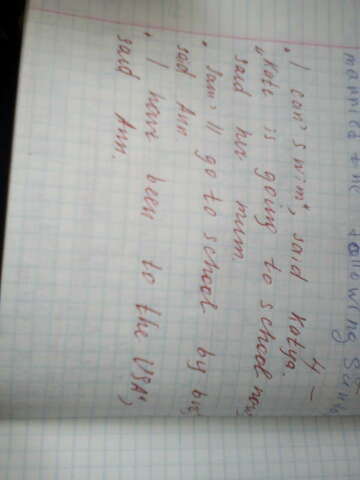 the following
4 –
• I can swim", said Katya.
„Kate is going to school now,
said her mum.
• Sam'll go to school by bus,
said Ann.
• I have been to the USA",
said Ann.